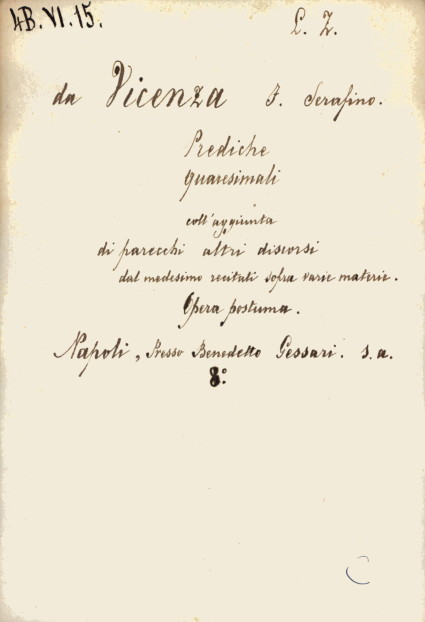 4B.VI.15.
L. Z.
da Vicenza F. Serafino.
Prediche
quaresimali
coll'aggiunta
di parecchi altri discorsi
dal medesimo recitati sopra varie materie.
Opera postuma.
Napoli, Presso Benedetto Gessari. s.a.
8.°